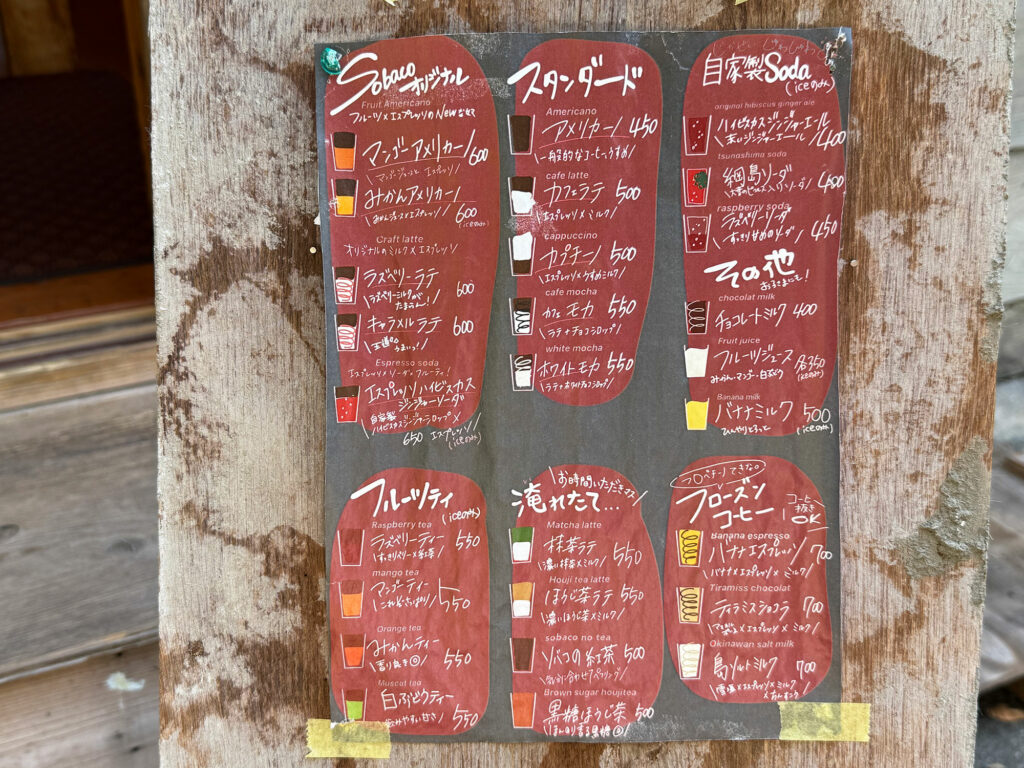 Sobaco オリジナル
Fruit Americano
フルーツ×エスプレッソのNew
マンゴーアメリカーノ 600
みかんアメリカーノ
600 (iceのみ)
Craft latte
オリジナルのミルク×エスプレッソ
ラズベリーラテ 600
\ラズベリーミルクが
たまらん!/
キャラメルラテ 600
うまいっ!/
Espresso soda
エスプレッソハイビスカス
ジンジャーソーダ
自家製
ハイビスカスジンジャーシロップ×
650 エスプレッソ/ (iceのみ)
スタンダード
Americano
アメリカーノ 450
\一般的なコーヒーうすめ/
cafe latte
カフェラテ 500
エスプレッソ×ミルク/
cappuccino
カプチーノ 500
\エスプレッソ×うすめミルク/
cafe mocha
カフェモカ 550
\ラテ+チョコシロップ/
white mocha
ホワイトモカ 550
\ラテ+ホワイトチョコシロップ/
自家製Soda
(iceのみ)
original hibiscus ginger ale
ハイビスカスジンジャーエール
ジンジャーエール/ 400
tsunashima soda
綱島ソーダ 450
raspberry soda
ラズベリーソーダ
\すっきり甘めのソーダ/ 450
その他
お子さまにも!
chocolat milk
チョコレートミルク 400
Fruit juice
フルーツジュース 各350
みかん・マンゴー・白ぶどう (iceのみ)
Banana milk
バナナミルク 500
(iceのみ)
フルーツティ
(iceのみ)
Raspberry tea
ラズベリーティー 550
\すっきりベリー×紅茶/
mango tea
マンゴーティー
550
Orange tea
みかんティー
\香り良き◎/ 550
Muscat tea
白ぶどうティー
飲みやすい甘さ/ 550
\お時間いただきマス/
淹れたて...
Matcha latte
抹茶ラテ 550
\濃い抹茶×ミルク/
Houji tea latte
ほうじ茶ラテ 550
\濃いほうじ茶×ミルク/
sobaco no tea
ソバコの紅茶 500
\気分に合わせてペアリング/
Brown sugar houjitea
黒糖ほうじ茶 500
\ほんのり香る黒糖◎/
フローズン
コーヒー
コーヒー
抜き
OK
Banana espresso
バナナエスプレッソ 700
\バナナ×エスプレッソ×ミルク/
Tiramiss chocolat
ティラミスショコラ 700
Okinawan salt milk
島ソルトミルク 700
×エスプレッソ×ミルク